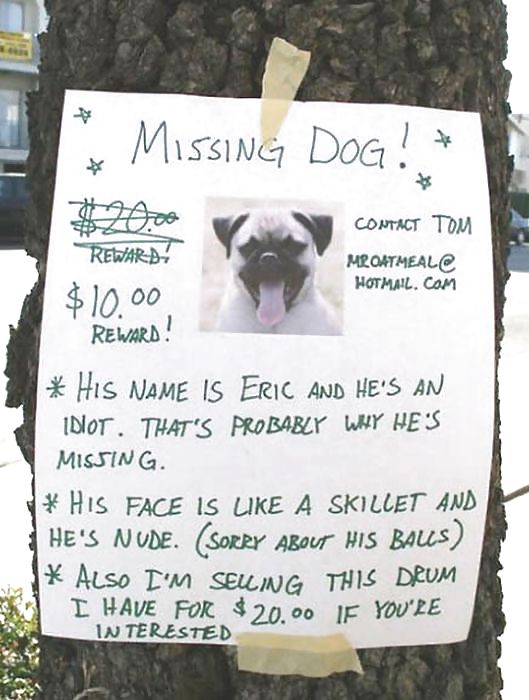 MISSING DOG!
$20.00
REWARD!
$10.00
REWARD!
CONTACT TOM
MROATMEAL@
HOTMAIL.COM
* HIS NAME IS ERIC AND HE'S AN
IDIOT. THAT'S PROBABLY WHY HE'S
MISSING.
* HIS FACE IS LIKE A SKILLET AND
HE'S NUDE. (SORRY ABOUT HIS BALLS)
* ALSO I'M SELLING THIS DRUM
I HAVE FOR $20.00 IF YOU'RE
INTERESTED